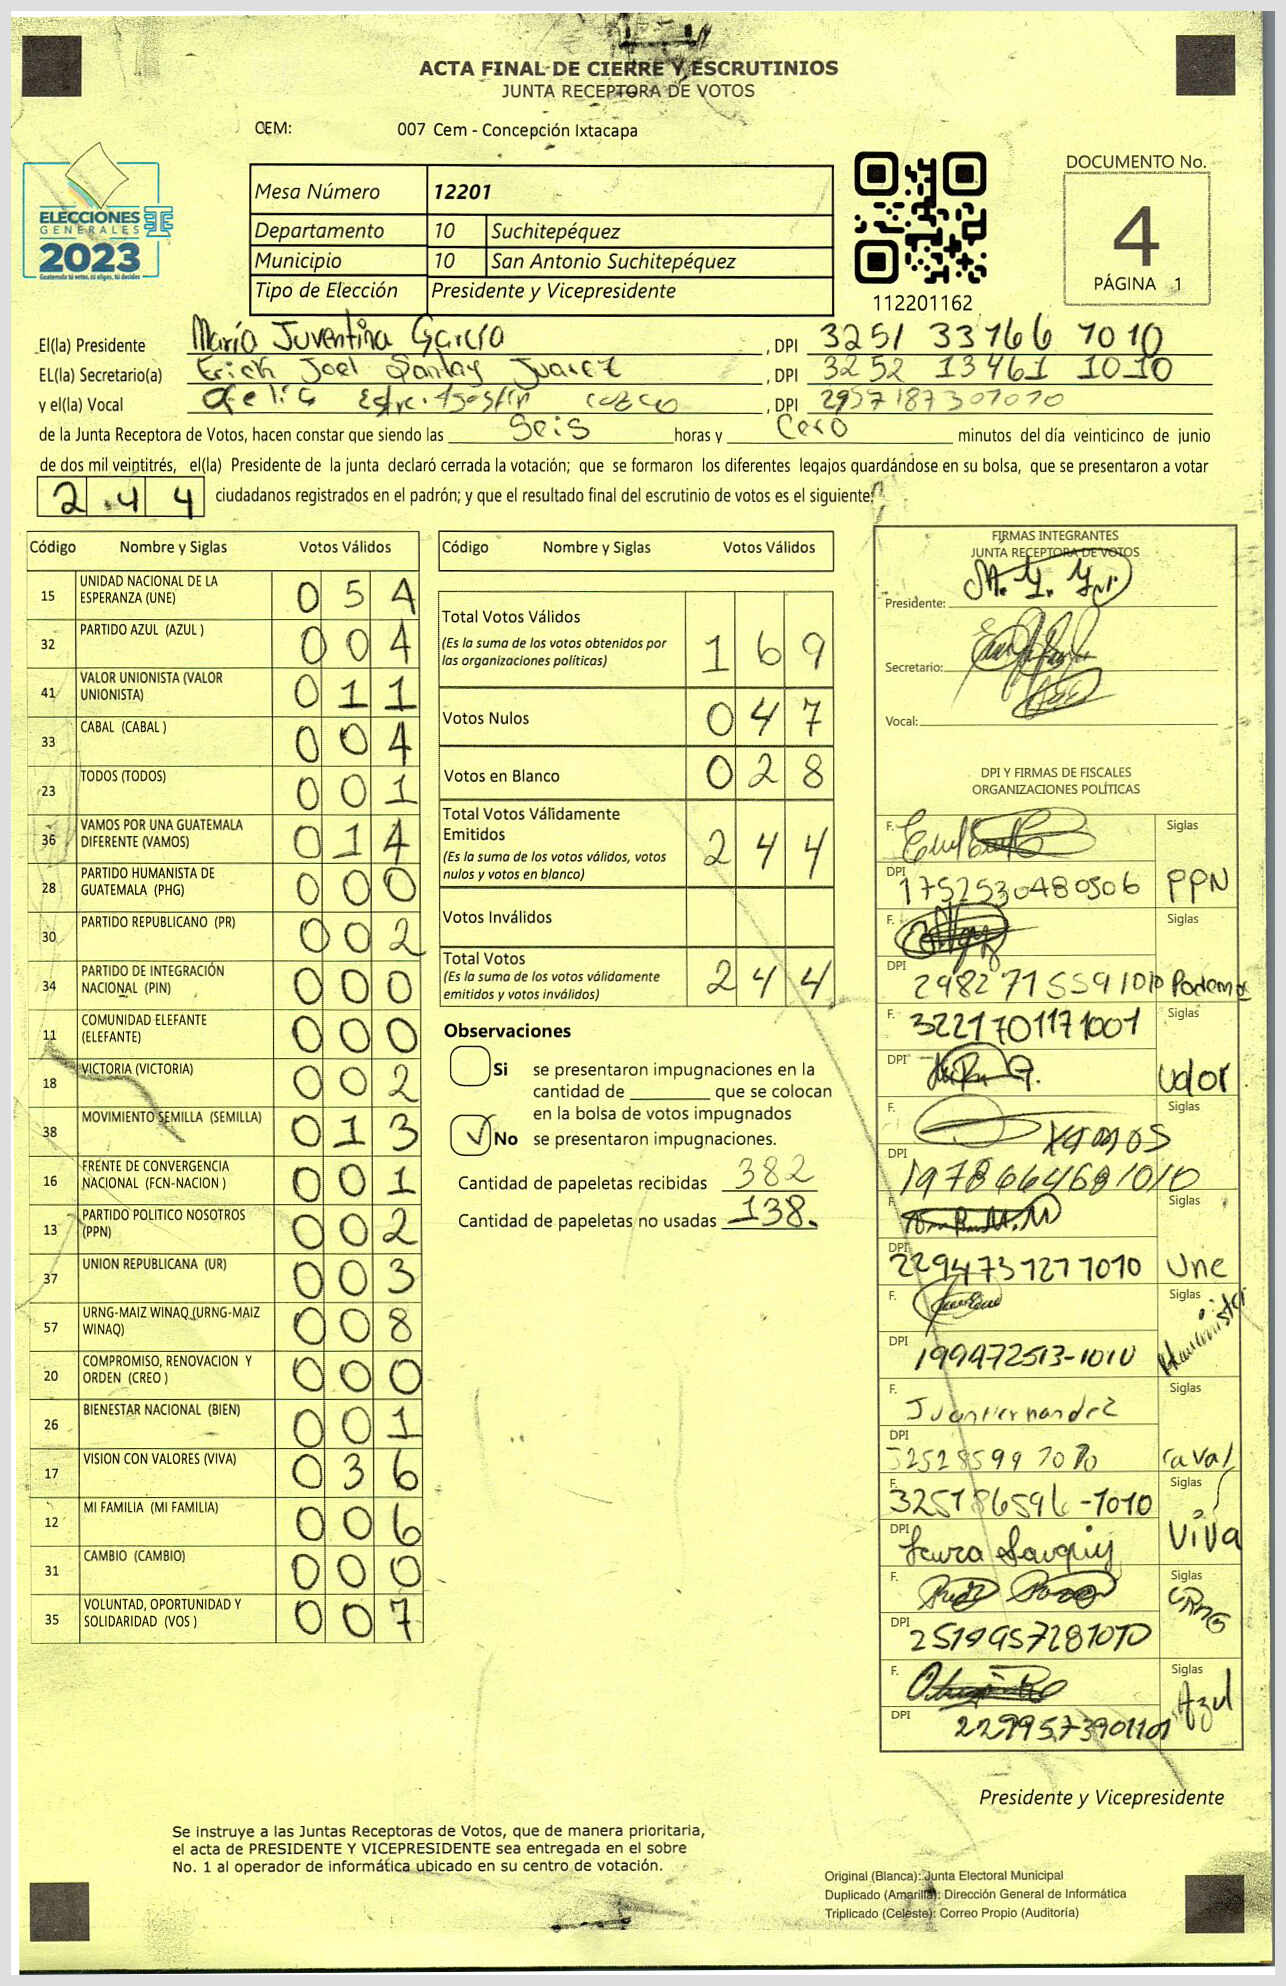 ACTA FINAL DE CIERRE Y ESCRUTINIOS
JUNTA RECEPTORA DE VOTOS
CEM: 007 Cem - Concepción Ixtacapa
ELECCIONES
GENERALES
2023
Guatemala tú votas, tú eliges, tú decides
Mesa Número 12201
Departamento 10 Suchitepéquez
Municipio 10 San Antonio Suchitepéquez
Tipo de Elección Presidente y Vicepresidente
112201162
DOCUMENTO No.
4
PÁGINA 1
El(la) Presidente María Juventina García , DPI 3251 33766 1010
EL(la) Secretario(a) Erich Joel Juarez , DPI 3252 13461 1010
y el(la) Vocal , DPI 2957187301010
de la Junta Receptora de Votos, hacen constar que siendo las Seis horas y Cero minutos del día veinticinco de junio
de dos mil veintitrés, el(la) Presidente de la junta declaró cerrada la votación; que se formaron los diferentes legajos guardándose en su bolsa, que se presentaron a votar
2 4 4 ciudadanos registrados en el padrón; y que el resultado final del escrutinio de votos es el siguiente:
Código Nombre y Siglas Votos Válidos
15 UNIDAD NACIONAL DE LA ESPERANZA (UNE) 0 5 4
32 PARTIDO AZUL (AZUL ) 0 0 4
41 VALOR UNIONISTA (VALOR UNIONISTA) 0 1 1
33 CABAL (CABAL ) 0 0 4
23 TODOS (TODOS) 0 0 1
36 VAMOS POR UNA GUATEMALA DIFERENTE (VAMOS) 0 1 4
28 PARTIDO HUMANISTA DE GUATEMALA (PHG) 0 0 0
30 PARTIDO REPUBLICANO (PR) 0 0 2
34 PARTIDO DE INTEGRACIÓN NACIONAL (PIN) 0 0 0
11 COMUNIDAD ELEFANTE (ELEFANTE) 0 0 0
18 VICTORIA (VICTORIA) 0 0 2
38 MOVIMIENTO SEMILLA (SEMILLA) 0 1 3
16 FRENTE DE CONVERGENCIA NACIONAL (FCN-NACION ) 0 0 1
13 PARTIDO POLITICO NOSOTROS (PPN) 0 0 2
37 UNION REPUBLICANA (UR) 0 0 3
57 URNG-MAIZ WINAQ (URNG-MAIZ WINAQ) 0 0 8
20 COMPROMISO, RENOVACION Y ORDEN (CREO ) 0 0 0
26 BIENESTAR NACIONAL (BIEN) 0 0 1
17 VISION CON VALORES (VIVA) 0 3 6
12 MI FAMILIA (MI FAMILIA) 0 0 6
31 CAMBIO (CAMBIO) 0 0 0
35 VOLUNTAD, OPORTUNIDAD Y SOLIDARIDAD (VOS ) 0 0 7
Código Nombre y Siglas Votos Válidos
Total Votos Válidos
(Es la suma de los votos obtenidos por las organizaciones políticas) 1 6 9
Votos Nulos 0 4 7
Votos en Blanco 0 2 8
Total Votos Válidamente Emitidos
(Es la suma de los votos válidos, votos nulos y votos en blanco) 2 4 4
Votos Inválidos
Total Votos
(Es la suma de los votos válidamente emitidos y votos inválidos) 2 4 4
Observaciones
Si se presentaron impugnaciones en la
cantidad de ________ que se colocan
en la bolsa de votos impugnados
✓ No se presentaron impugnaciones.
Cantidad de papeletas recibidas 382
Cantidad de papeletas no usadas 138.
FIRMAS INTEGRANTES
JUNTA RECEPTORA DE VOTOS
Presidente:
Secretario:
Vocal:
DPI Y FIRMAS DE FISCALES
ORGANIZACIONES POLÍTICAS
F. Siglas
DPI 1752530480506 PPN
F. Siglas
DPI 2982715591010 Podemos
F. 3221701171001 Siglas
DPI Valor
F. Siglas
VAMOS
DPI 1978664681010
F. Siglas
DPI 2294737271010 Une
F. Siglas
DPI 199472513-1010
F. Juan Hernandez Siglas
DPI
F. 325186596-1010 Siglas
DPI Viva
F. Siglas
DPI 2519957281010 URNG
F. Siglas
DPI 2299573901101 Azul
Presidente y Vicepresidente
Se instruye a las Juntas Receptoras de Votos, que de manera prioritaria,
el acta de PRESIDENTE Y VICEPRESIDENTE sea entregada en el sobre
No. 1 al operador de informática ubicado en su centro de votación.
Original (Blanca): Junta Electoral Municipal
Duplicado (Amarilla): Dirección General de Informática
Triplicado (Celeste): Correo Propio (Auditoría)